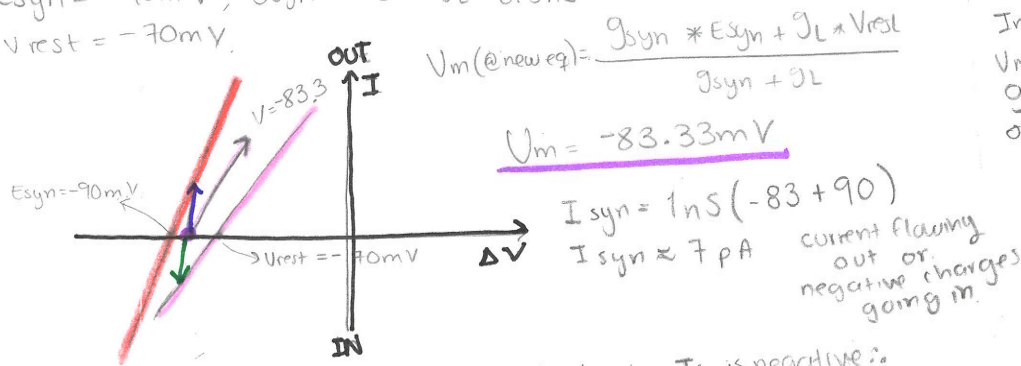 Vrest = -70mV.
OUT
I
V=-83.3
Esyn=-90mV.
Vrest = -70mV
ΔV
IN
Vm(@new eq)= gsyn * Esyn + gL * Vrest
gsyn + gL
Vm = -83.33mV
Isyn = 1nS(-83+90)
Isyn ≈ 7pA
current flowing
out or
negative charges
going in.
is negative ∴
Vm